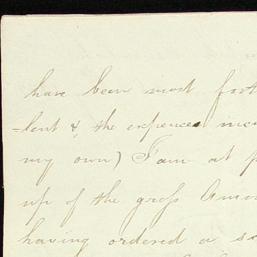 have been most
-lent & the expences
my own) I am at
up of the gross Amo
having ordered a